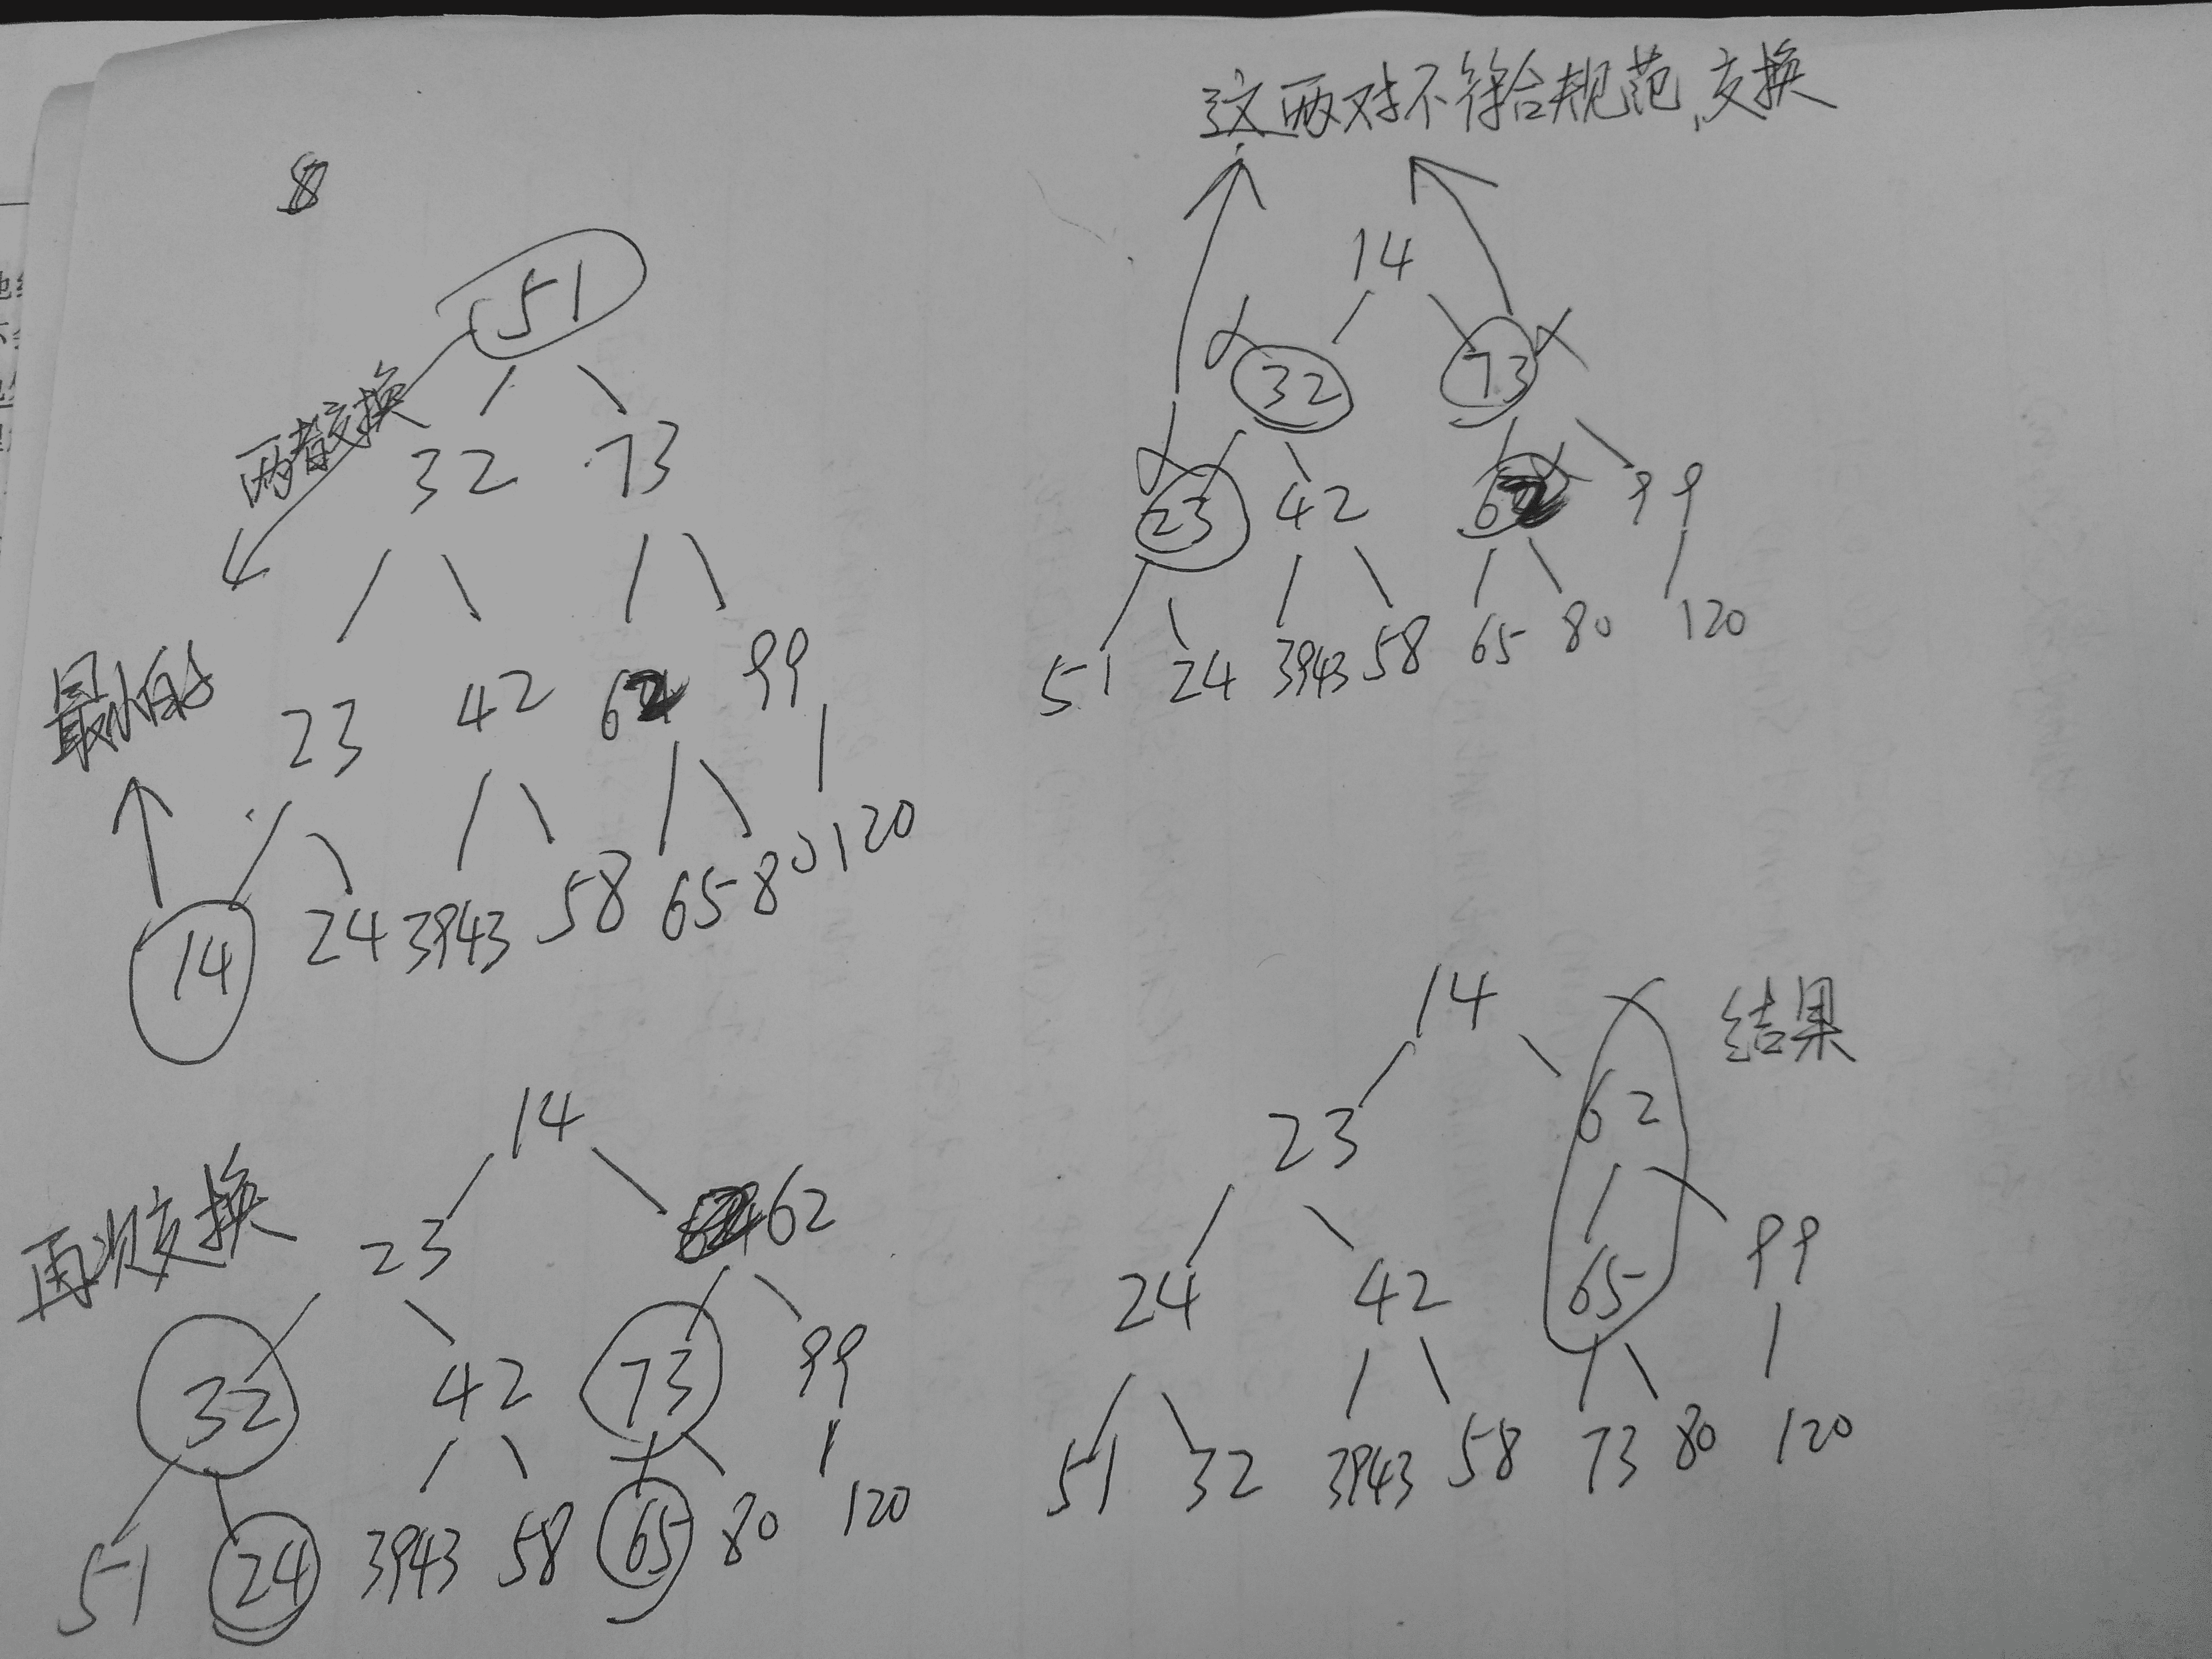 8
51
两者交换
32 73
最小的
23 42 62 99
14 24 3943 58 65 80 120
这两对不符合规范,交换
14
32 73
23 42 62 99
51 24 3943 58 65 80 120
再次交换
14
23 62
32 42 73 99
51 24 3943 58 65 80 120
结果
14
23 62
24 42 65 99
51 32 3943 58 73 80 120